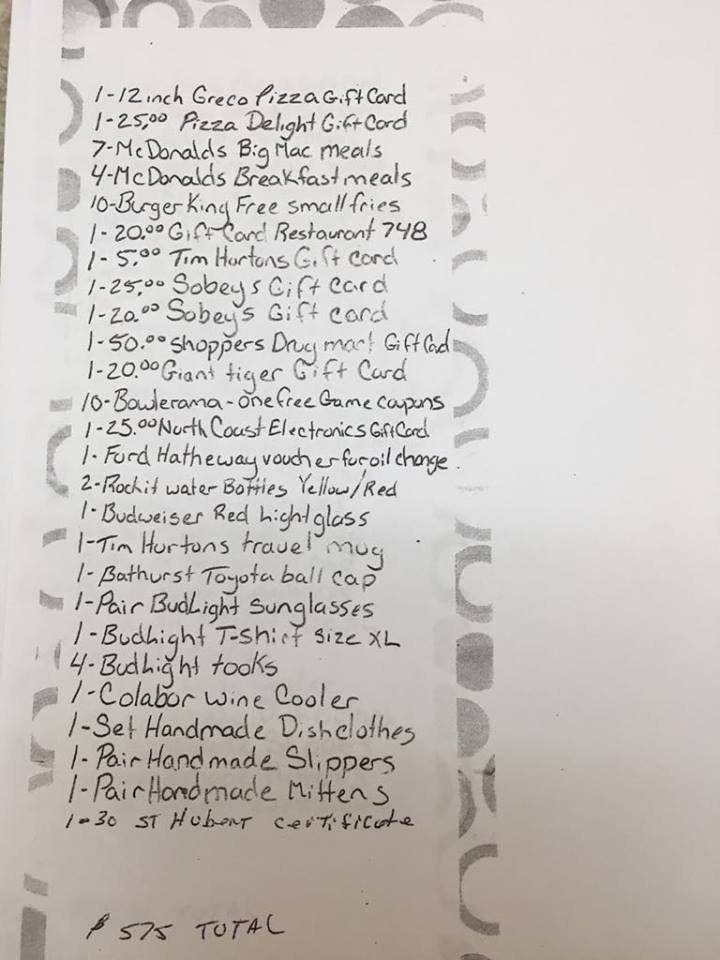 1-12inch Greco Pizza Gift Card
1-25,00 Pizza Delight Gift Card
7-McDonalds Big Mac meals
4-McDonalds Breakfast meals
10-Burger King Free small fries
1-20.00 Gift Card Restaurant 748
1-5.00 Tim Hortons Gift Card
1-25.00 Sobeys Gift Card
1-20.00 Sobey's Gift Card
1-50.00 Shoppers Drug mart Gift Card
1-20.00 Giant tiger Gift Card
10-Bowlerama-one free Game coupons
1-25.00 North Coast Electronics Gift Card
1-Ford Hatheway voucher for oil change.
2-Rockit water Bottles Yellow/Red
1-Budweiser Red hight glass
1-Tim Hortons travel mug
1-Bathurst Toyota ball cap
1-Pair BudLight sunglasses
1-BudLight T-shirt size XL
4-BudLight tooks
1-Colabor Wine Cooler
1-Set Handmade Dishclothes
1-Pair Handmade Slippers
1-Pair Handmade Mittens
1-30 ST Hubert certificate
$575 TOTAL